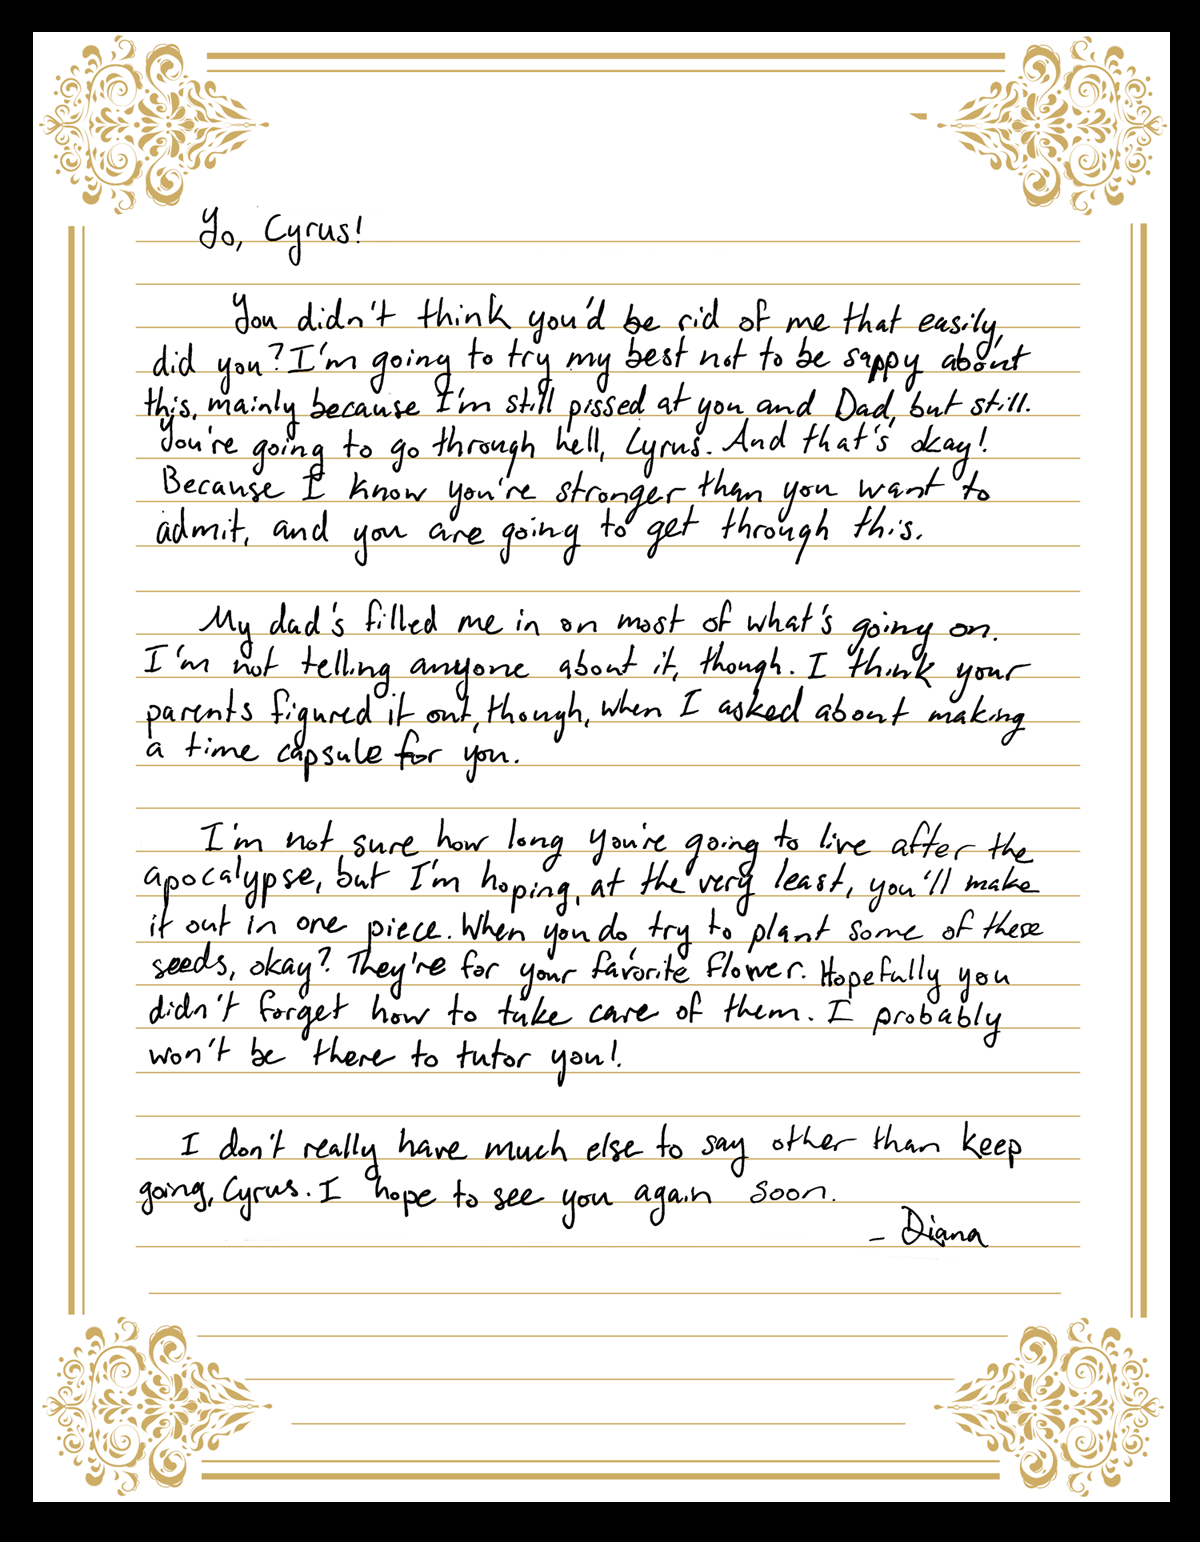 Yo, Cyrus!
You didn't think you'd be rid of me that easily,
did you? I'm going to try my best not to be sappy about
this, mainly because I'm still pissed at you and Dad, but still.
You're going to go through hell, Cyrus. And that's okay!
Because I know you're stronger than you want to
admit, and you are going to get through this.
My dad's filled me in on most of what's going on.
I'm not telling anyone about it, though. I think your
parents figured it out, though, when I asked about making
a time capsule for you.
I'm not sure how long you're going to live after the
apocalypse, but I'm hoping, at the very least, you'll make
it out in one piece. When you do, try to plant some of these
seeds, okay? They're for your favorite flower. Hopefully you
didn't forget how to take care of them. I probably
won't be there to tutor you!
I don't really have much else to say other than keep
going, Cyrus. I hope to see you again soon.
- Diana